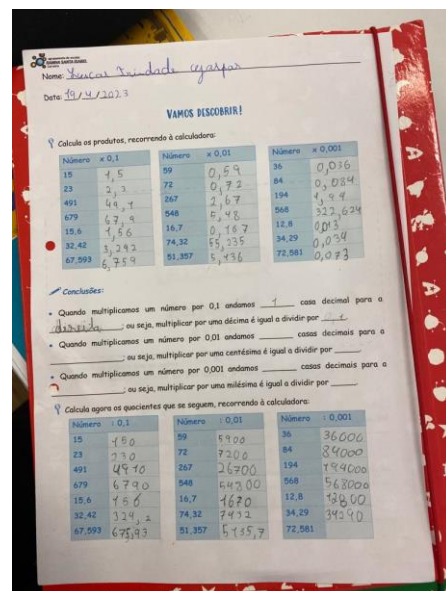 RAINHA SANTA ISABEL
Nome: Lucas Trindade
Data: 19/4/2023
VAMOS DESCOBRIR!
Calcula os produtos, recorrendo à calculadora:
Número x 0,1
15 1,5
23 2,3
491 49,1
679 67,9
15,6 1,56
32,42 3,242
67,593 6,759
Número x 0,01
59 0,59
72 0,72
267 2,67
548 5,48
16,7 0,167
74,32
51,357 5,136
Número x 0,001
36 0,036
84 0,084
194 1,94
568 322,624
12,8 0,013
34,29 0,034
72,581 0,073
Conclusões:
• Quando multiplicamos um número por 0,1 andamos 1 casa decimal para a
direita; ou seja, multiplicar por uma décima é igual a dividir por
• Quando multiplicamos um número por 0,01 andamos ______ casas decimais para a
______; ou seja, multiplicar por uma centésima é igual a dividir por ______.
• Quando multiplicamos um número por 0,001 andamos ______ casas decimais para a
______; ou seja, multiplicar por uma milésima é igual a dividir por ______.
Calcula agora os quocientes que se seguem, recorrendo à calculadora:
Número : 0,1
15 150
23 230
491 4910
679 6790
15,6 156
32,42 324,2
67,593 675,93
Número : 0,01
59 5900
72 7200
267 26700
548 54800
16,7 1670
74,32 7432
51,357 5135,7
Número : 0,001
36 36000
84 84000
194 194000
568 568000
12,8 12800
34,29 34290
72,581